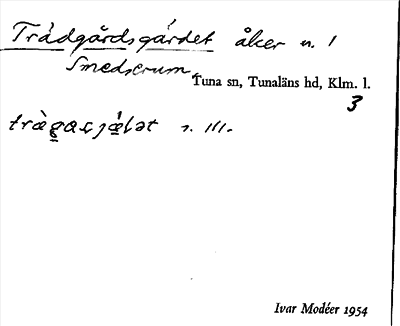 Trädgårdsgärdet åker n. 1
Smedserum
Tuna sn, Tunaläns hd, Klm. l.
3
Ivar Modéer 1954